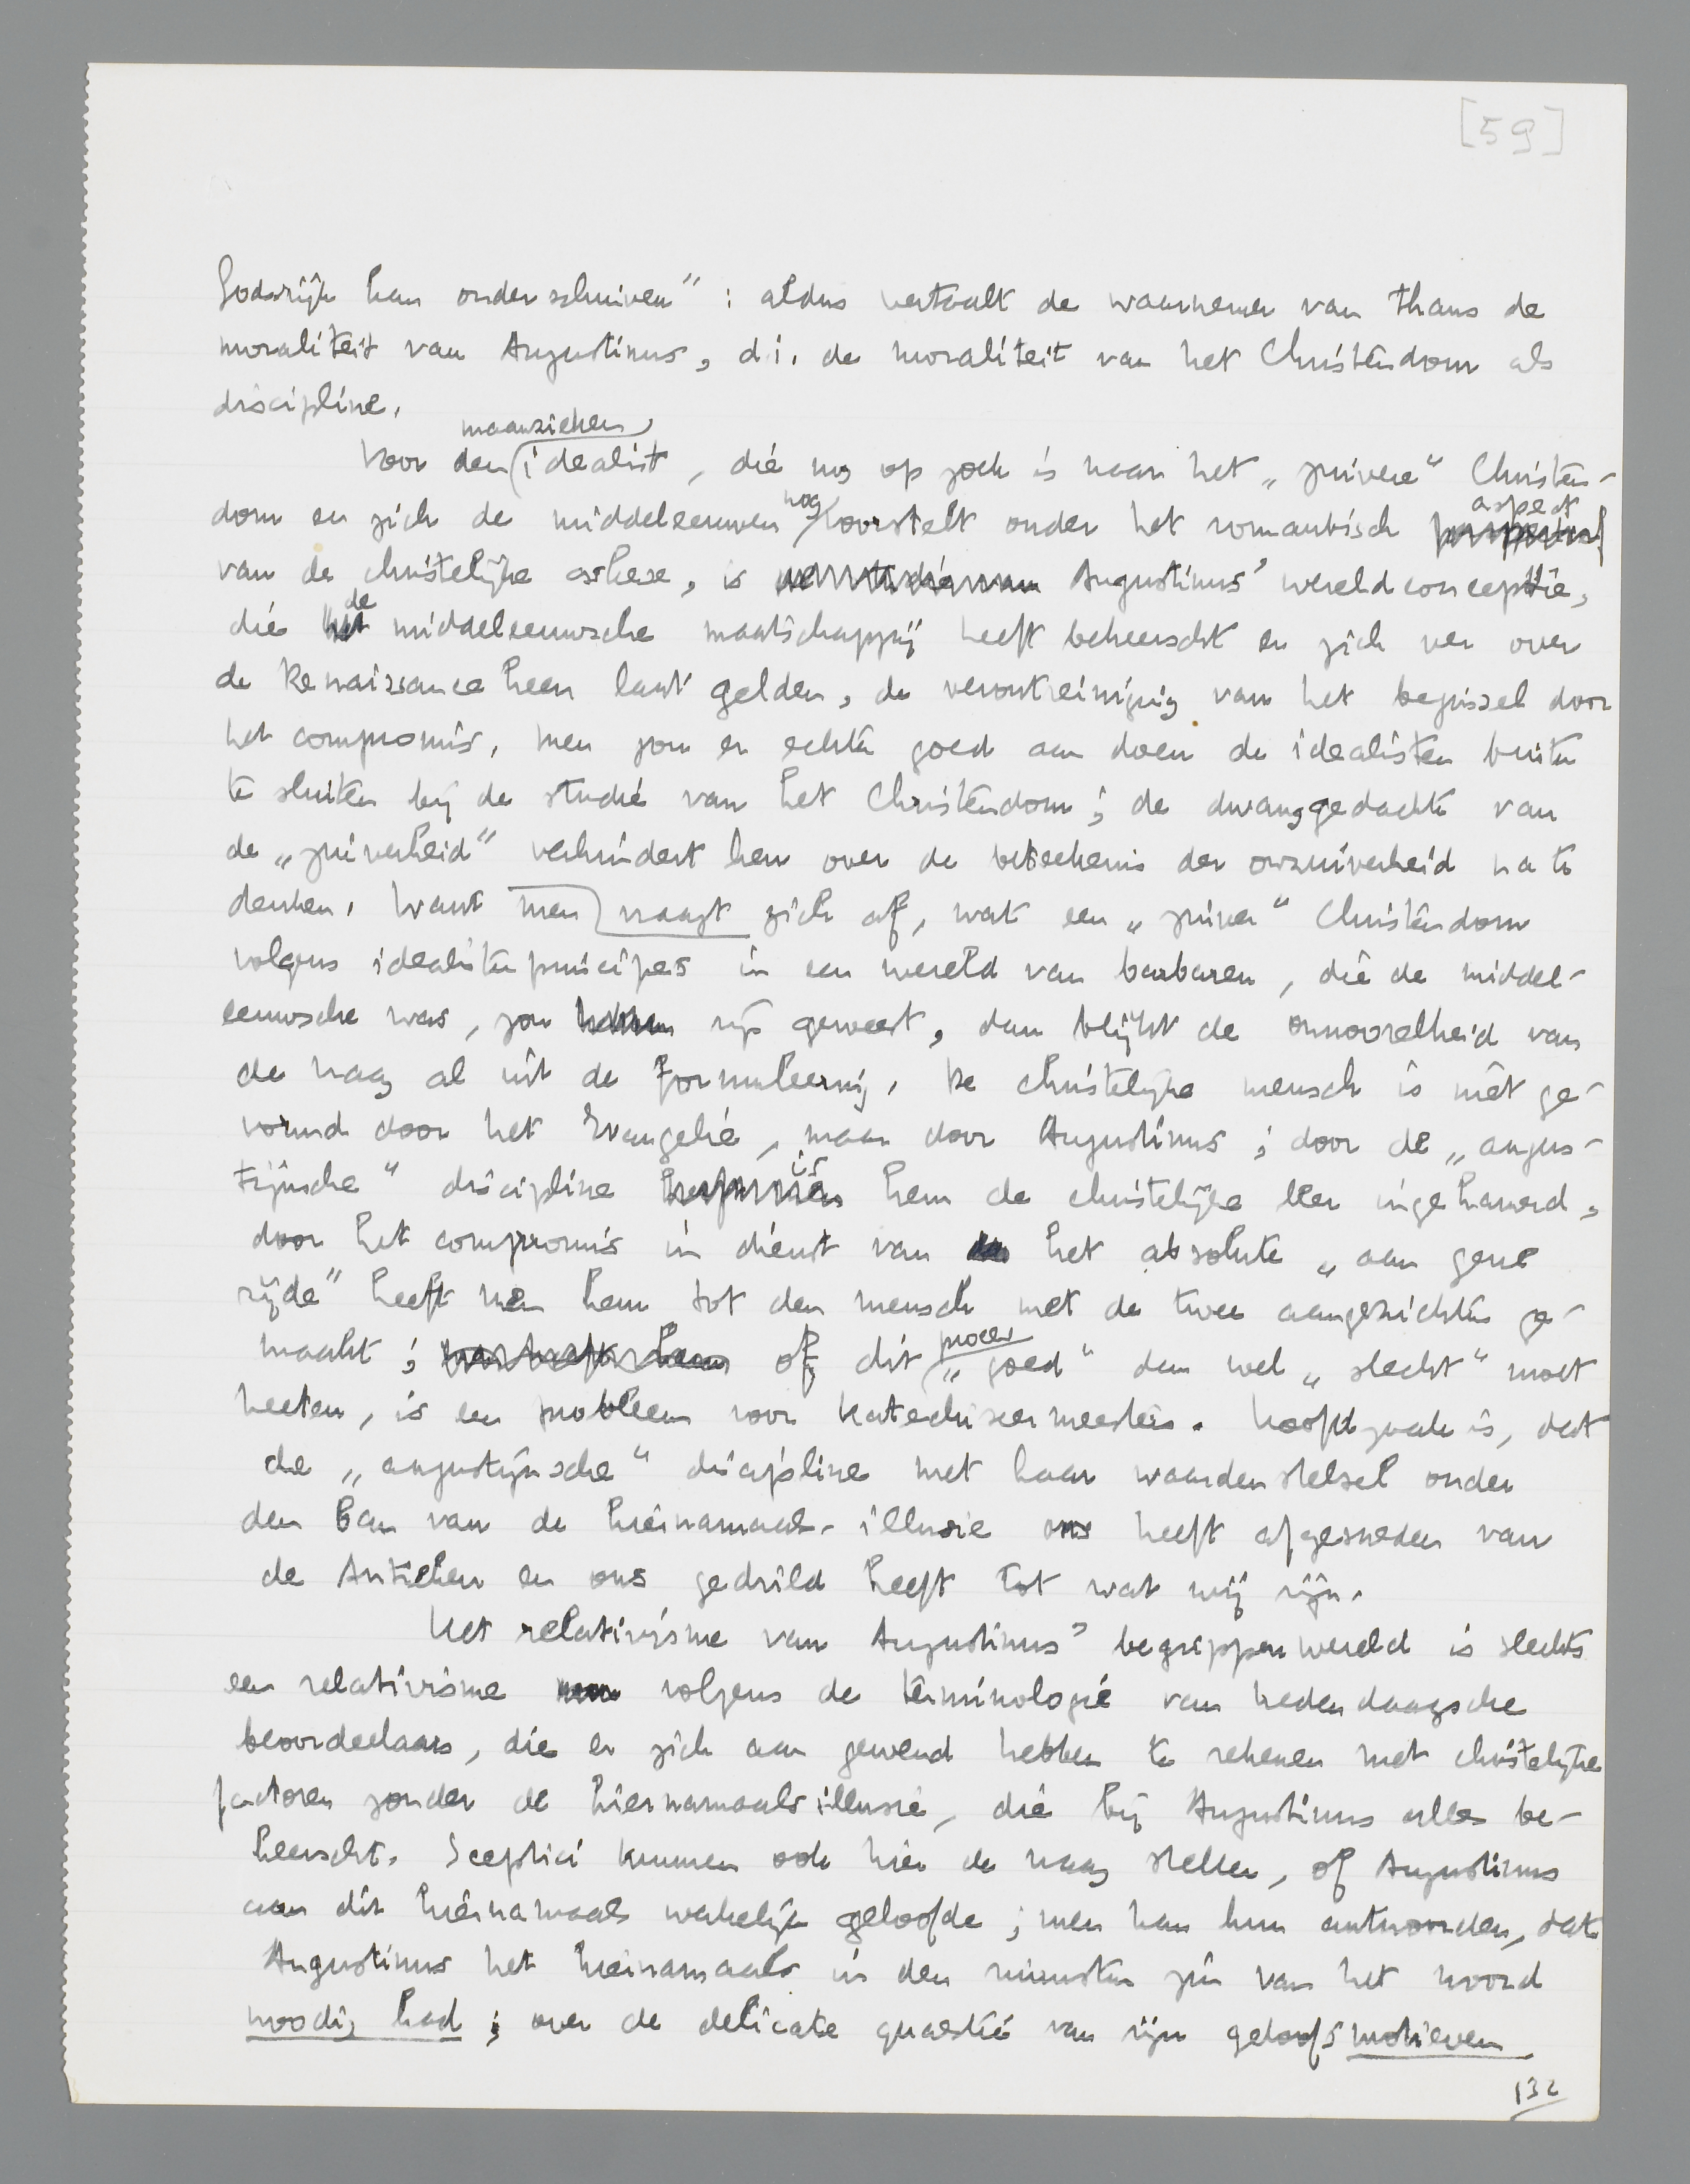 [59]
Godsrijk kan onderschuiven" : aldus vertaalt de waarnemer van thans de
moraliteit van Augustinus, d.i. de moraliteit van het Christendom als
discipline.
maanzieken
Voor den idealist, die nog op zoek is naar het „zuivere" Christen-
nog aspect
dom en zich de middeleeuwen voorstelt onder het romantisch
van de christelijke askese, is Augustinus' wereldconceptie,
de
die het middeleeuwsche maatschappij heeft beheerscht en zich ver over
de Renaissance heen laat gelden, de verontreiniging van het beginsel door
het compromis. Men zou er echter goed aan doen de idealisten buiten
te sluiten bij de studie van het Christendom; de dwanggedachte van
de „zuiverheid" verhindert hen over de beteekenis der onzuiverheid na te
denken. Want men vraagt zich af, wat een „zuiver" Christendom
volgens idealistenprincipes in een wereld van barbaren, die de middel-
eeuwsche was, zou zijn geweest, dan blijkt de onnoozelheid van
de vraag al uit de formuleering. De christelijke mensch is niet ge-
vormd door het Evangelie, maar door Augustinus; door de „augus-
is
tijnsche" discipline hem de christelijke leer ingehamerd,
door het compromis in dienst van het absolute „aan gene
zijde" heeft men hem tot den mensch met de twee aangezichten ge-
proces
maakt; of dit „goed" dan wel „slecht" moet
heeten, is een probleem voor katechiseermeesters. Hoofdzaak is, dat
de „augustijnsche" discipline met haar waardenstelsel onder
den ban van de hiernamaals-illusie ons heeft afgesneden van
de Antieken en ons gedrild heeft tot wat wij zijn.
Het relativisme van Augustinus' begrippenwereld is slechts
een relativisme volgens de terminologie van hedendaagsche
beoordeelaars, die er zich aan gewend hebben te rekenen met christelijke
factoren zonder de hiernamaalsillusie, die bij Augustinus alles be-
heerscht. Sceptici kunnen ook hier de vraag stellen, of Augustinus
aan dit hiernamaals werkelijk geloofde; men kan hun antwoorden, dat
Augustinus het hiernamaals in den ruimsten zin van het woord
noodig had; over de delicate quaestie van zijn geloofsmotieven
132